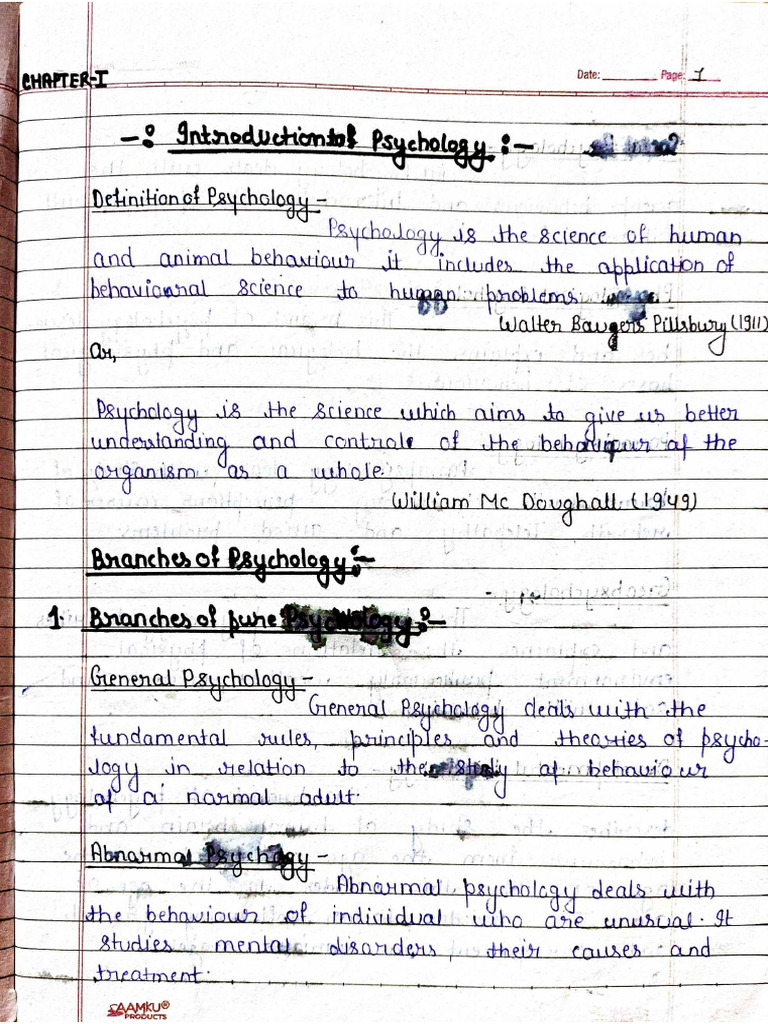 CHAPTER-I
Date: Page: 1
-: Introduction to of Psychology :-
Definition of Psychology -
Psychology is the science of human
and animal behaviour it includes the application of
behavioural science to human problems.
Walter Baugers Pillsbury (1911)
Or,
Psychology is the science which aims to give us better
understanding and control of the behaviour of the
organism as a whole.
William Mc Doughall (1949)
Branches of Psychology :-
1. Branches of pure Psychology :-
General Psychology -
General Psychology deals with the
fundamental rules, principles and theories of psycho-
logy in relation to the study of behaviour
of a normal adult.
Abnormal Psychology -
Abnormal psychology deals with
the behaviour of individual who are unusual. It
studies mental disorders, their causes and
treatment.
SAAMKU®
PRODUCTS